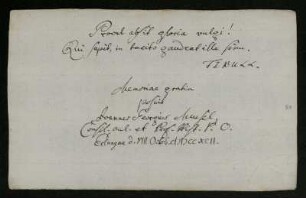 Procul absit gloria vulgi!
Qui sapit, in tacito gaudeat ille sinu.
TIBULL.
Memoriae gratia
scripsit
Joannes Georgius Meusel,
Consil. aul. et Prof. Hist. P. O.
Erlangae d. VIII Octob. MDCCXCII.